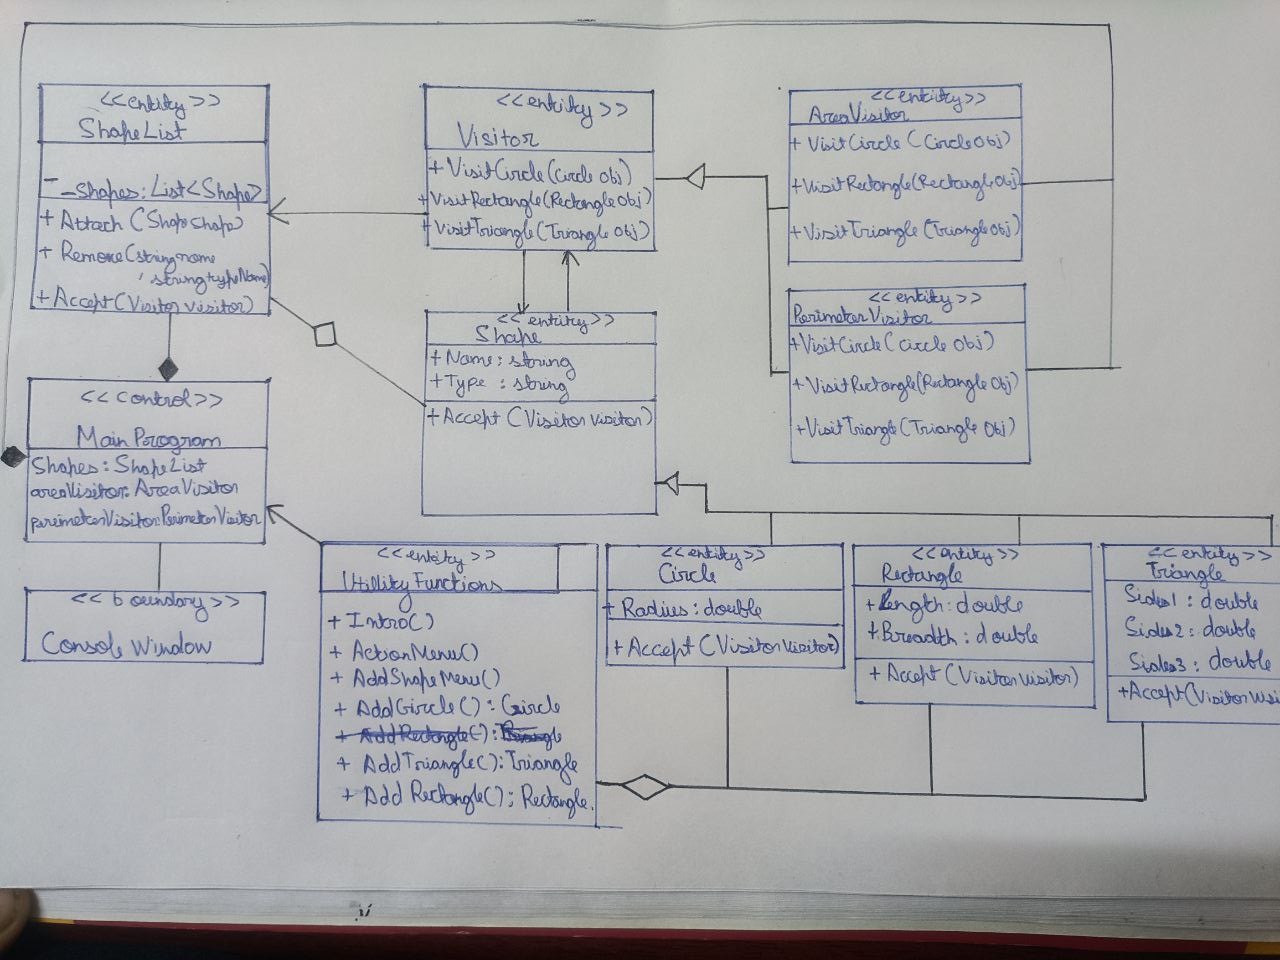 <<entity>>
ShapeList
- _shapes: List<Shape>
+ Attach (Shape shape)
+ Remove(string name
, string typeName)
+ Accept(Visitor visitor)
<<entity>>
Visitor
+ VisitCircle(Circle obj)
+ VisitRectangle(Rectangle obj)
+ VisitTriangle(Triangle obj)
<<entity>>
AreaVisitor
+ VisitCircle (Circle Obj)
+ VisitRectangle(Rectangle Obj)
+ VisitTriangle (Triangle Obj)
<<entity>>
PerimeterVisitor
+ VisitCircle (Circle Obj)
+ VisitRectangle(Rectangle Obj)
+ VisitTriangle (Triangle Obj)
<<entity>>
Shape
+ Name: string
+ Type : string
+ Accept (Visitor visitor)
<<control>>
Main Program
Shapes: ShapeList
areaVisitor: AreaVisitor
perimeterVisitor: PerimeterVisitor
<<boundary>>
Console Window
<<entity>>
Utillity Functions
+ Intro()
+ ActionMenu()
+ AddShapeMenu()
+ AddCircle() : Circle
+ AddRectangle() :
+ AddTriangle() : Triangle
+ Add Rectangle() ; Rectangle.
<<entity>>
Circle
+ Radius: double
+ Accept (Visitor visitor)
<<entity>>
Rectangle
+ Length: double
+ Breadth: double
+ Accept (Visitor visitor)
<<entity>>
Triangle
Sides1 : double
Sides2 : double
Sides3 : double
+Accept(Visitor visi